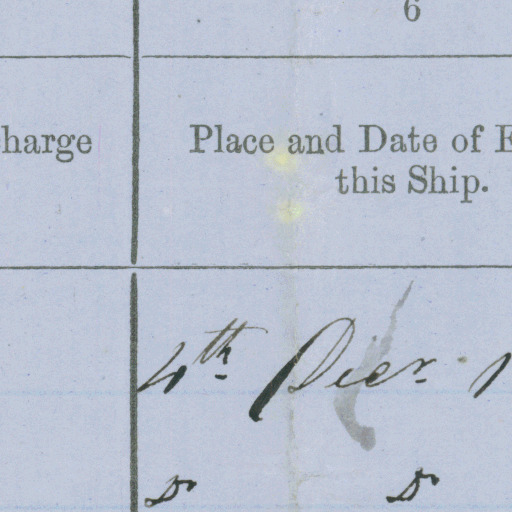 6
charge
Place and Date of E
this Ship.
4th Decr. 1
Do Do